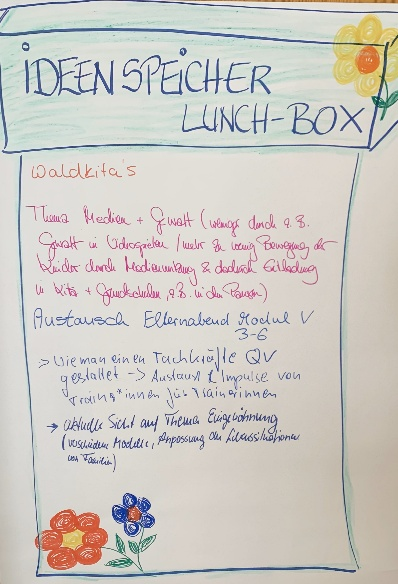 iDEENSPEiCHER
LUNCH-BOX
Waldkita's
Thema Medien + Gewalt (weniger durch z.B.
Gewalt in Videospielen / mehr zu wenig Bewegung der
Kinder durch Mediennutzung & dadurch Entladung
in Kita + Grundschulen, z.B. in den Pausen)
Austausch Elternabend Modul V
3-6
> Wie man einen Fachkräfte QV
gestaltet -> Austausch & Impulse von
Trainer*innen für Trainerinnen
-> aktuelle Sicht auf Thema Eingewöhnung
(verschiedene Modelle, Anpassung der Lebenssituationen
von Familien)